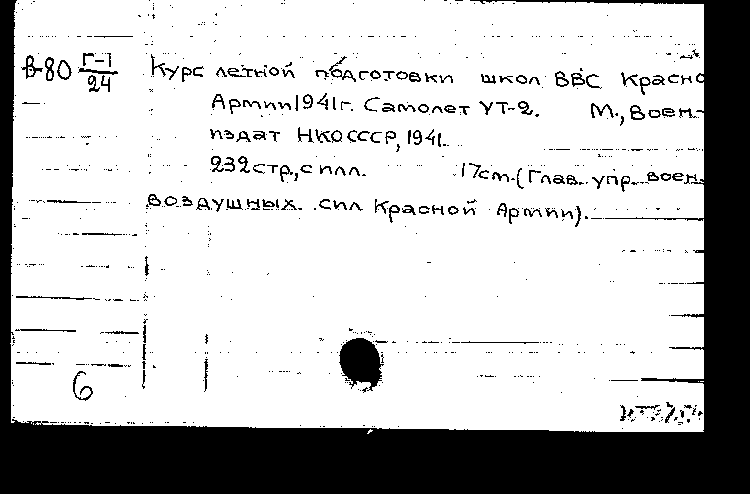 В-80 Г-1/24 Курс летной подготовки школ ВВС Красно
Армии 1941 г. Самолет УТ-2. М., Воен-
издат НКО СССР, 1941.
232 стр., с илл. 17 см. (Глав. упр. воен.
воздушных сил Красной Армии).
6